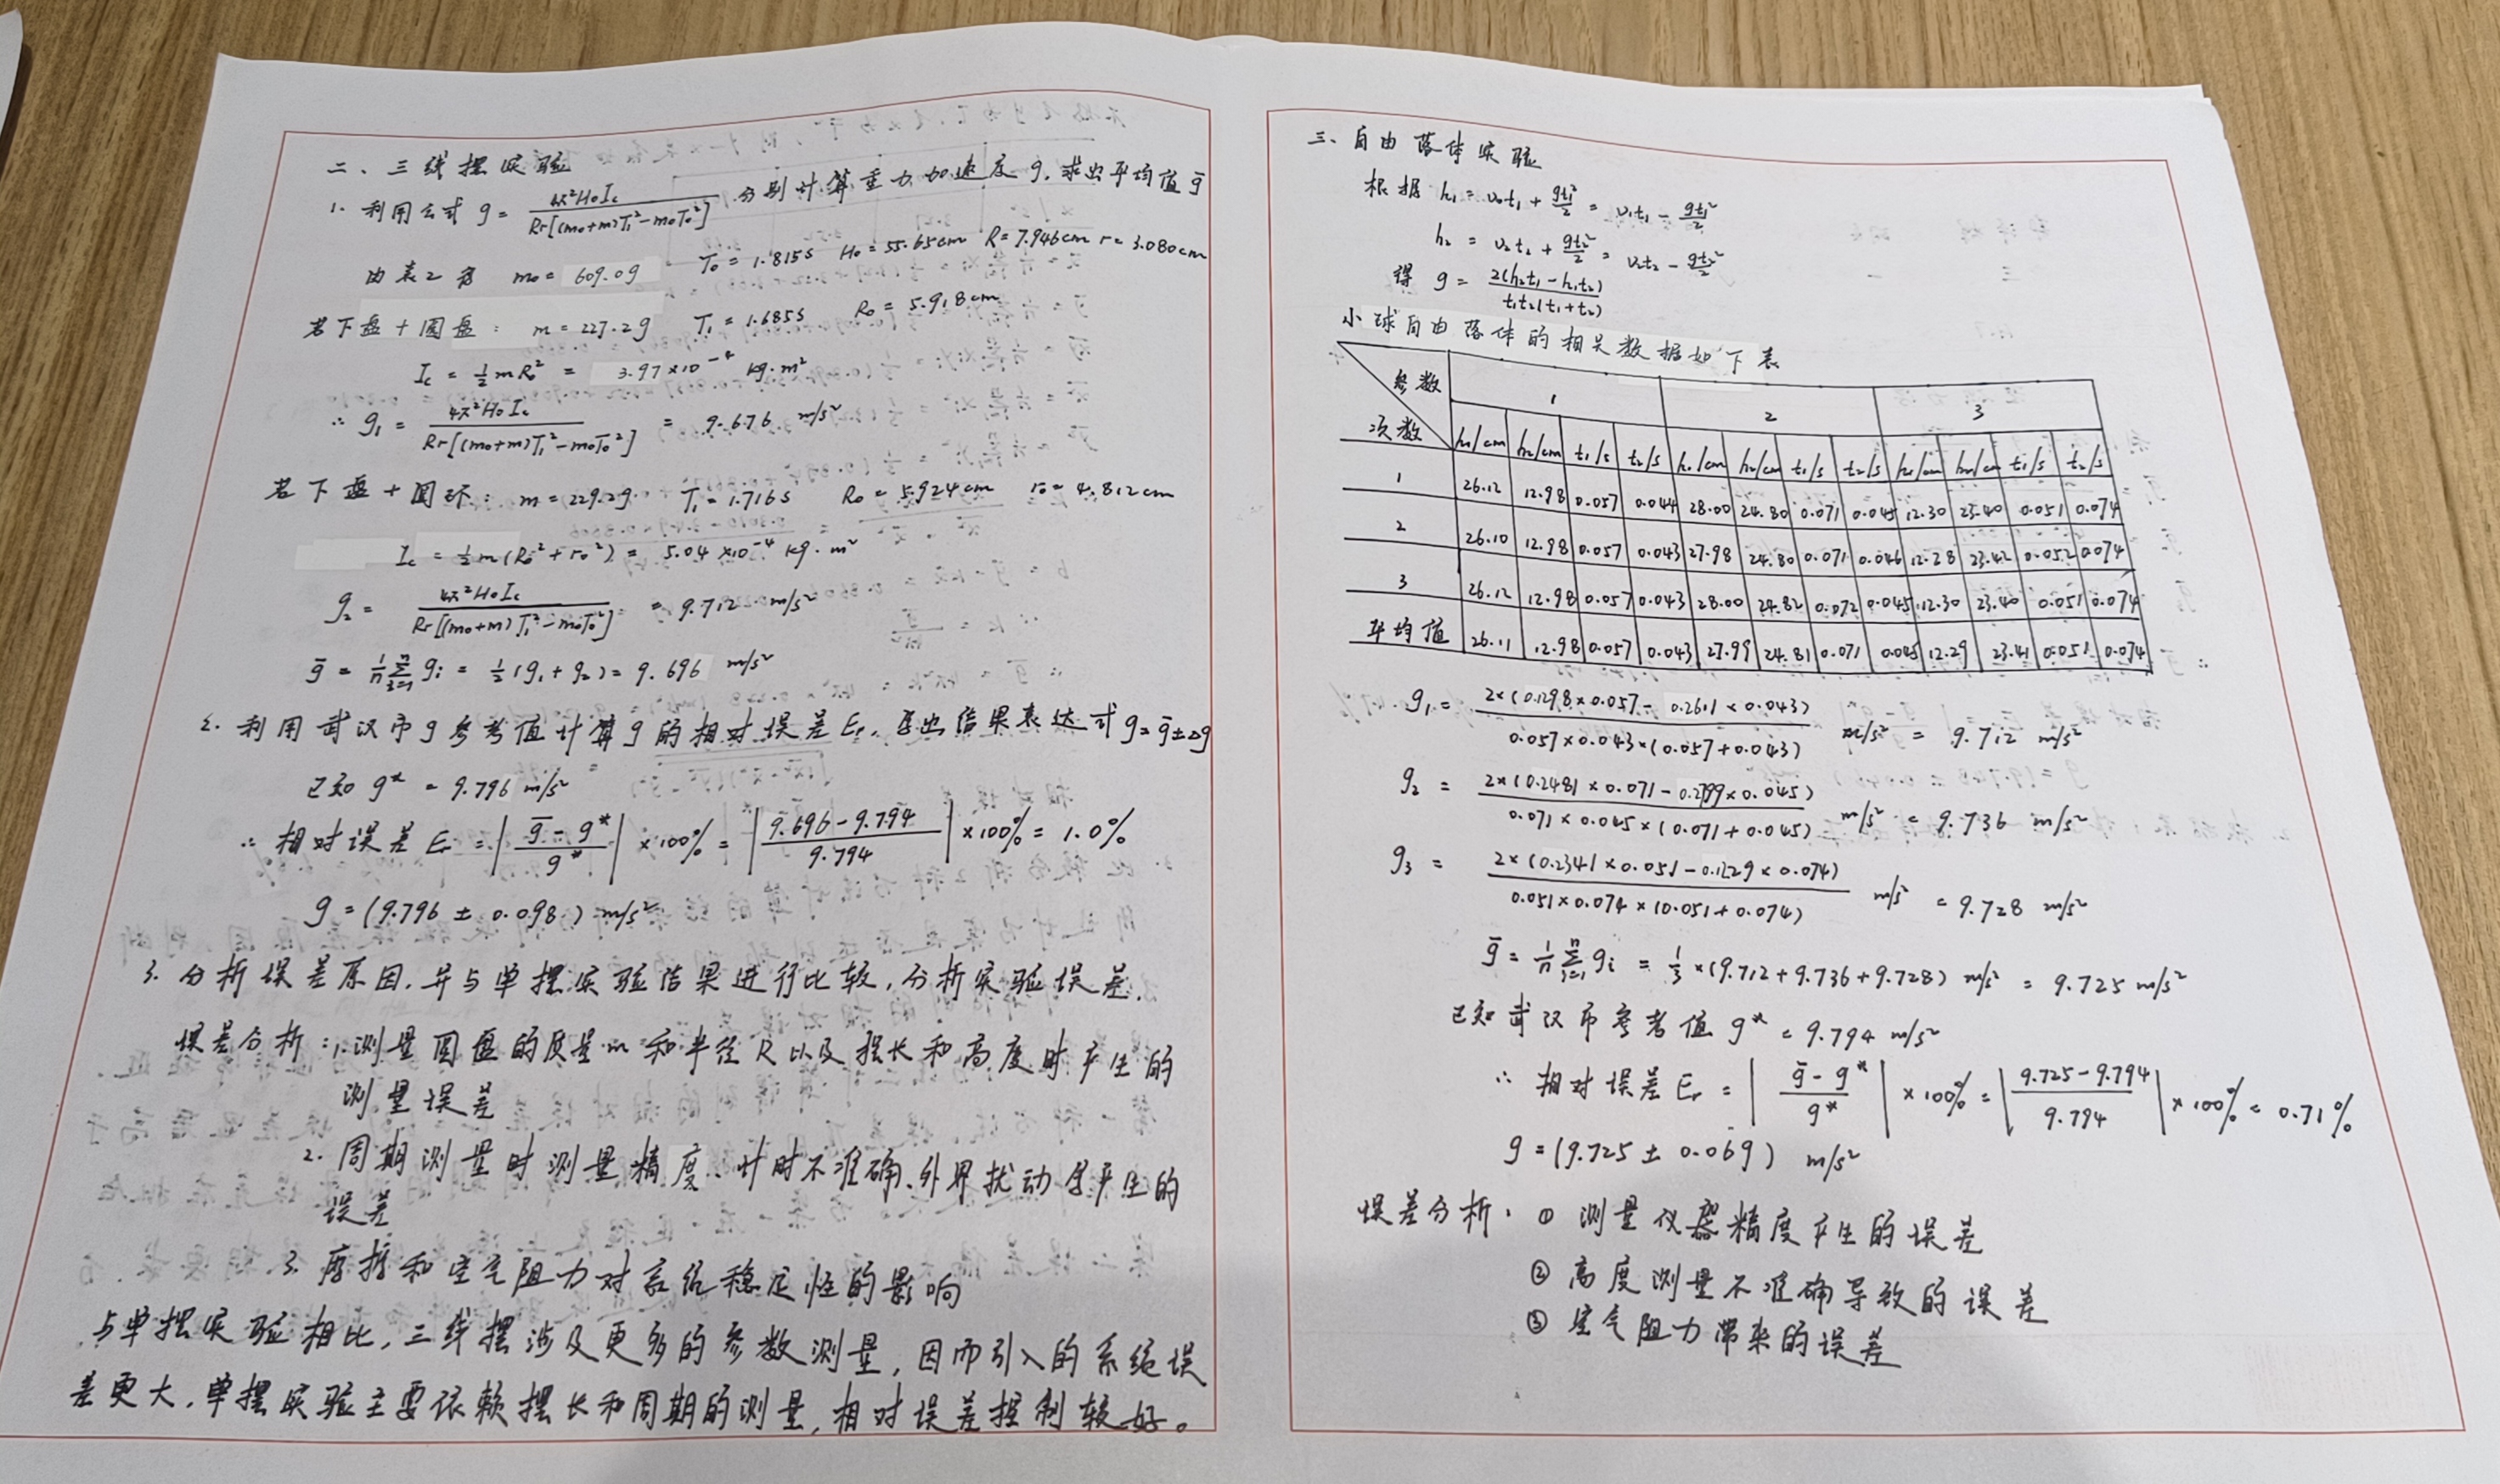 二、三线摆实验
1. 利用公式 g = 4π²H₀I_c / Rr[(m₀+m)T₁²-m₀T₀²] 分别计算重力加速度 g, 求出平均值 ḡ
由表2有 m₀ = 609.0g T₀ = 1.815s H₀ = 55.65cm R = 7.946cm r = 3.080cm
若下盘+圆盘: m = 227.2g T₁ = 1.685s R₀ = 5.918cm
I_c = ½mR₀² = 3.97×10⁻⁴ kg·m²
∴ g₁ = 4π²H₀I_c / Rr[(m₀+m)T₁²-m₀T₀²] = 9.676 m/s²
若下盘+圆环: m = 229.2g T₁ = 1.716s R₀ = 5.924cm r₀ = 4.812cm
I_c = ½m(R₀²+r₀²) = 5.04×10⁻⁴ kg·m²
g₂ = 4π²H₀I_c / Rr[(m₀+m)T₁²-m₀T₀²] = 9.712 m/s²
ḡ = 1/n Σ gᵢ = ½(g₁+g₂) = 9.696 m/s²
2. 利用武汉市g参考值计算g的相对误差Er, 写出结果表达式 g=ḡ±Δg
已知 g* = 9.796 m/s²
∴ 相对误差 Er = |(ḡ-g*)/g*| ×100% = |(9.696-9.794)/9.794| ×100% = 1.0%
g = (9.796 ± 0.098) m/s²
3. 分析误差原因, 并与单摆实验结果进行比较, 分析实验误差.
误差分析: 1.测量圆盘的质量m和半径R以及摆长和高度时产生的
测量误差
2. 周期测量时测量精度、计时不准确、外界扰动会产生的
误差
3. 摩擦和空气阻力对系统稳定性的影响
与单摆实验相比, 三线摆涉及更多的参数测量, 因而引入的系统误
差更大, 单摆实验主要依赖摆长和周期的测量, 相对误差控制较好。
三、自由落体实验
根据 h₁ = v₀t₁ + gt₁²/2 = v₁t₁ - gt₁²/2
h₂ = v₂t₂ + gt₂²/2 = v₂t₂ - gt₂²/2
得 g = 2(h₂t₁-h₁t₂) / t₁t₂(t₁+t₂)
小球自由落体的相关数据如下表
参数 1 2 3
次数 h₁/cm h₂/cm t₁/s t₂/s h₁/cm h₂/cm t₁/s t₂/s h₁/cm h₂/cm t₁/s t₂/s
1 26.12 12.98 0.057 0.044 28.00 24.80 0.071 0.045 12.30 23.40 0.051 0.074
2 26.10 12.98 0.057 0.043 27.98 24.80 0.071 0.046 12.28 23.42 0.052 0.074
3 26.12 12.98 0.057 0.043 28.00 24.82 0.072 0.045 12.30 23.40 0.051 0.074
平均值 26.11 12.98 0.057 0.043 27.99 24.81 0.071 0.045 12.29 23.41 0.051 0.074
g₁ = 2×(0.1298×0.057-0.2611×0.043) / 0.057×0.043×(0.057+0.043) m/s² = 9.712 m/s²
g₂ = 2×(0.2481×0.071-0.2799×0.045) / 0.071×0.045×(0.071+0.045) m/s² = 9.736 m/s²
g₃ = 2×(0.2341×0.051-0.1229×0.074) / 0.051×0.074×(0.051+0.074) m/s² = 9.728 m/s²
ḡ = 1/n Σ gᵢ = ⅓×(9.712+9.736+9.728) m/s² = 9.725 m/s²
已知武汉市参考值 g* = 9.794 m/s²
∴ 相对误差 Er = |(ḡ-g*)/g*| ×100% = |(9.725-9.794)/9.794| ×100% = 0.71%
g = (9.725 ± 0.069) m/s²
误差分析: ① 测量仪器精度产生的误差
② 高度测量不准确导致的误差
③ 空气阻力带来的误差